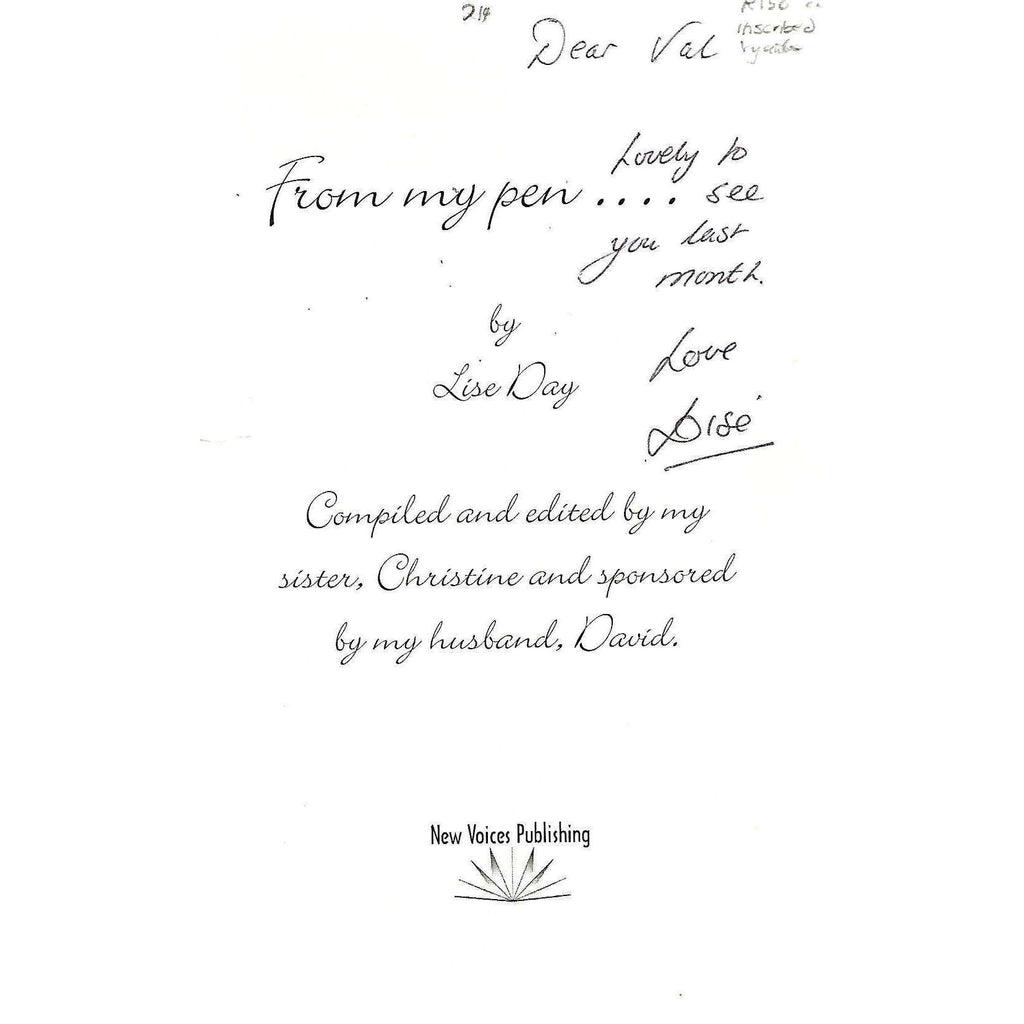 214
Dear Val
inscribed
Lovely to
From my pen .... see
you last
month.
by
Lise Day
Love
Lise
Compiled and edited by my
sister, Christine and sponsored
by my husband, David.
New Voices Publishing